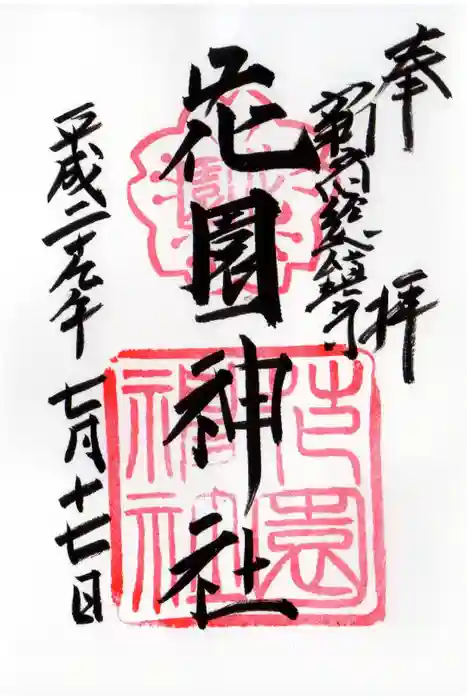 奉拝
新宿総鎮守
花園神社
花園
花園神社
平成二十九年 七月十七日